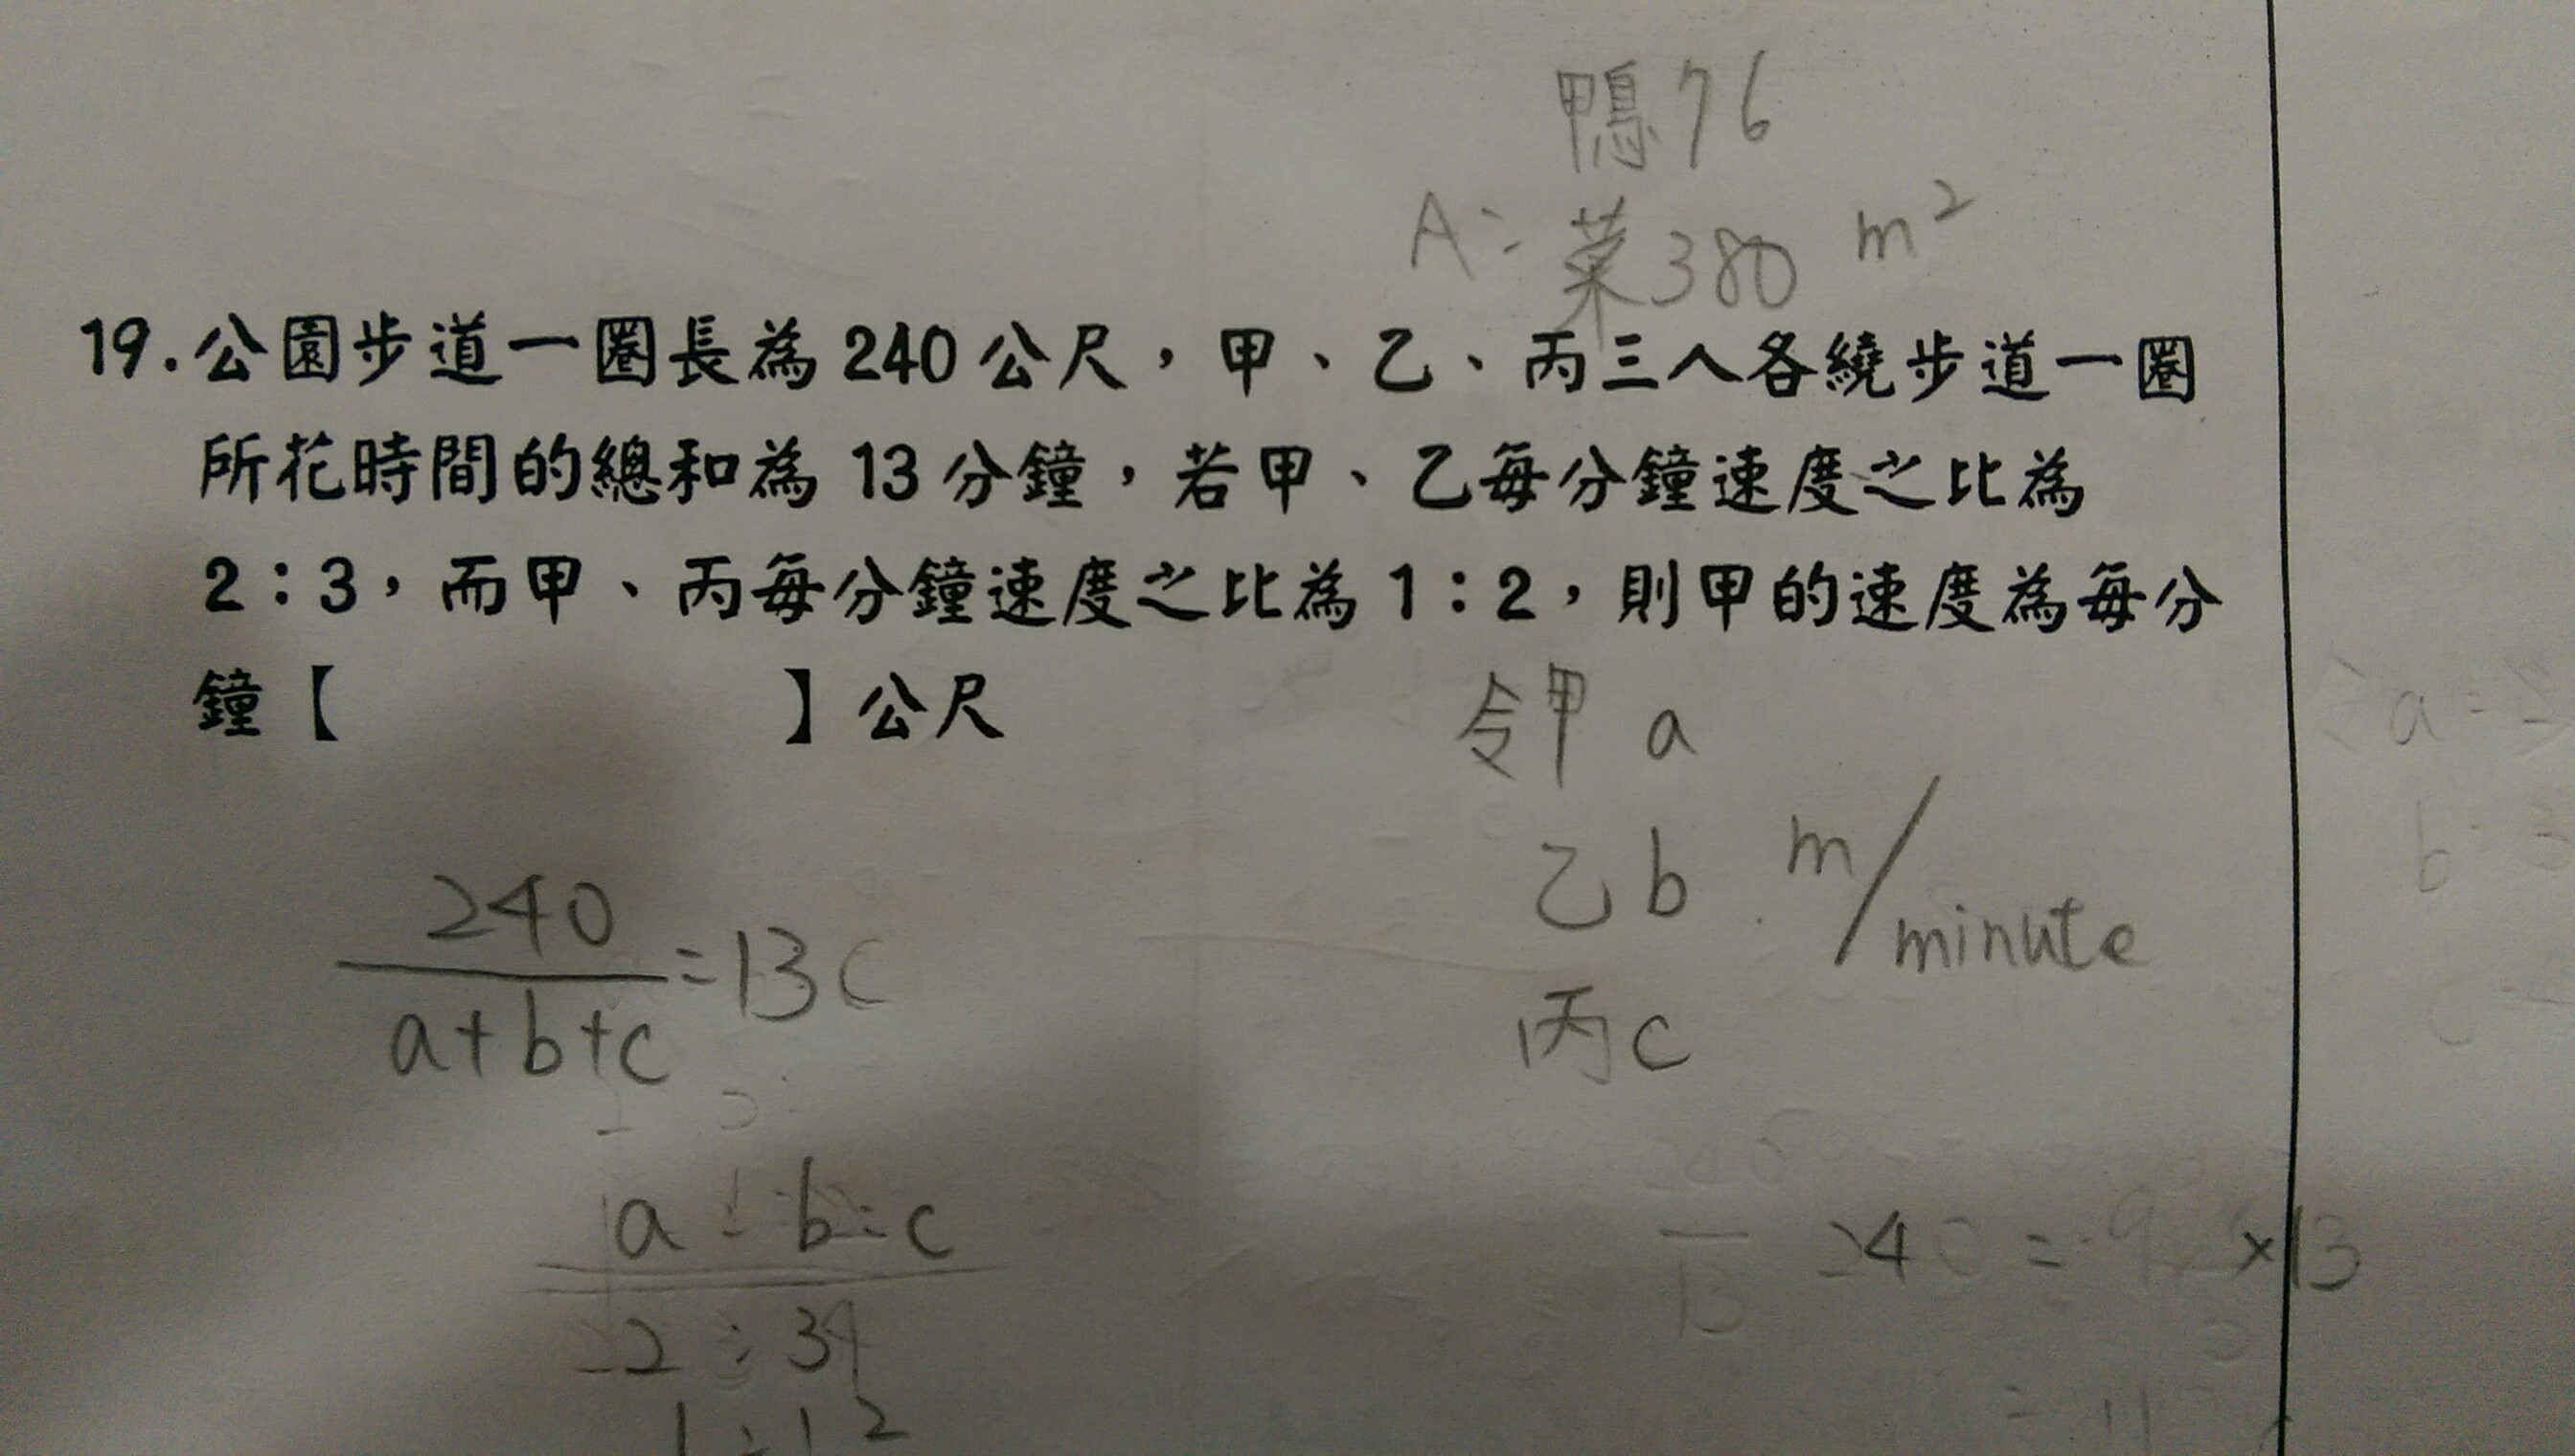 鴨76
A: 菜380 m²
19.公園步道一圈長為240公尺，甲、乙、丙三人各繞步道一圈
所花時間的總和為13分鐘，若甲、乙每分鐘速度之比為
2：3，而甲、丙每分鐘速度之比為1：2，則甲的速度為每分
鐘【 】公尺
令甲 a
乙 b m/minute
丙 c
240/a+b+c=13
a:b:c
2:3
240 = ×13
a=
b=